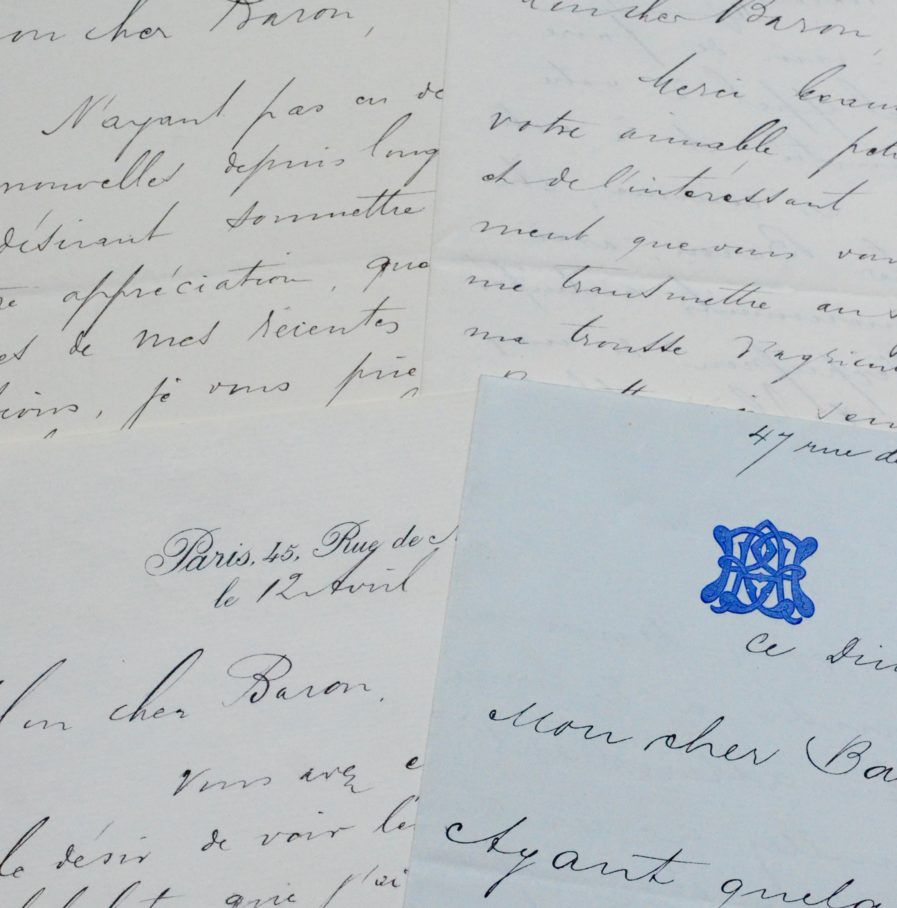 on cher Baron,
N'ayant pas eu de
nouvelles depuis long
désirant soumettre
appréciation, que
es de mes récentes
tions, je vous prie
cher Baron,
Merci beau
votre aimable
et de l'intéressant
ment que vous
me transmettre aus
ma trousse d'agricu
Paris, 45, Rue de
le 12 Avril
Mon cher Baron,
Vous avez
le désir de voir le
que j'ai
47 rue de
ce Dim
Mon cher Ba
Ayant quelq